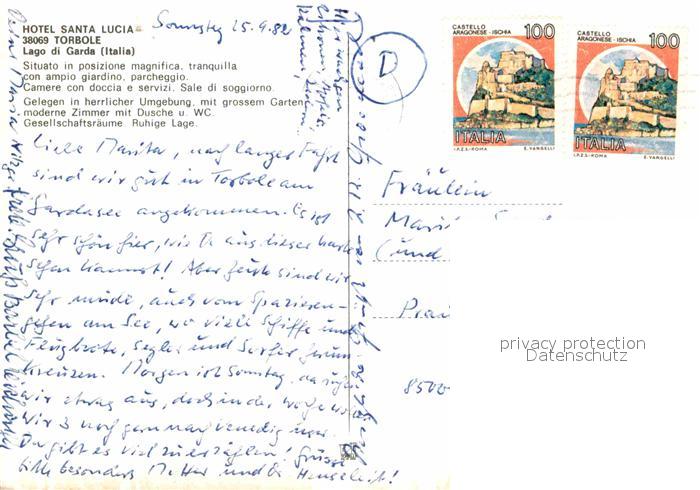 HOTEL SANTA LUCIA
38069 TORBOLE
Lago di Garda (Italia)
Situato in posizione magnifica, tranquilla
con ampio giardino, parcheggio.
Camere con doccia e servizi. Sale di soggiorno.
Gelegen in herrlicher Umgebung, mit grossem Garten
moderne Zimmer mit Dusche u. WC.
Gesellschaftsräume. Ruhige Lage.
Samstag 25.9.82
Liebe Marita, nach langer Fahrt
sind wir gut in Torbole am
Gardasee angekommen. Es ist
sehr schön hier, wie Du aus dieser Karte
sehen kannst! Aber heute sind wir
sehr müde, auch vom Spazieren-
gehen am See, wo viele Schiffe und
Flugboote, Segler und Surfer herum-
kreuzen. Morgen ist Sonntag, da ruhen
wir etwas aus, doch in der Woche
wir 3 noch gern nach Venedig
Da gibt es viel zu erzählen! Grüsse
bitte besonders Mutter und
D
CASTELLO
ARAGONESE - ISCHIA
100
ITALIA
I.P.Z.S. - ROMA
E. VANGELLI
CASTELLO
ARAGONESE - ISCHIA
100
ITALIA
I.P.Z.S. - ROMA
E. VANGELLI
Fräulein
(und
8500
privacy protection
Datenschutz